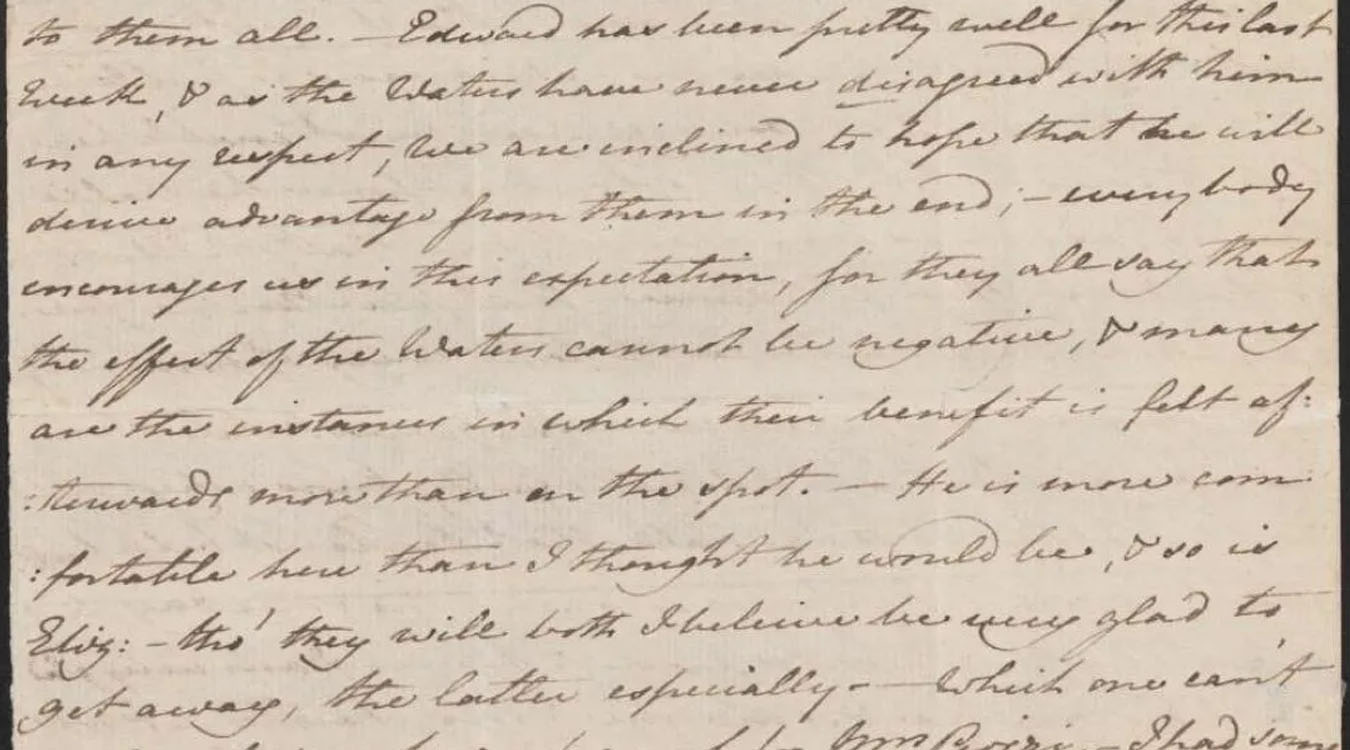 to them all. — Edward has been pretty well for this last
Week, & as the Waters have never disagreed with him
in any respect, We are inclined to hope that he will
derive advantage from them in the end; — everybody
encourages us in this expectation, for they all say that
the effect of the Waters cannot be negative, & many
are the instances in which their benefit is felt af:
:terwards more than on the spot. — He is more com:
:fortable here than I thought he would be, & so is
Eliz: — tho' they will both I believe be very glad to
get away, the latter especially — Which one can't
I had some